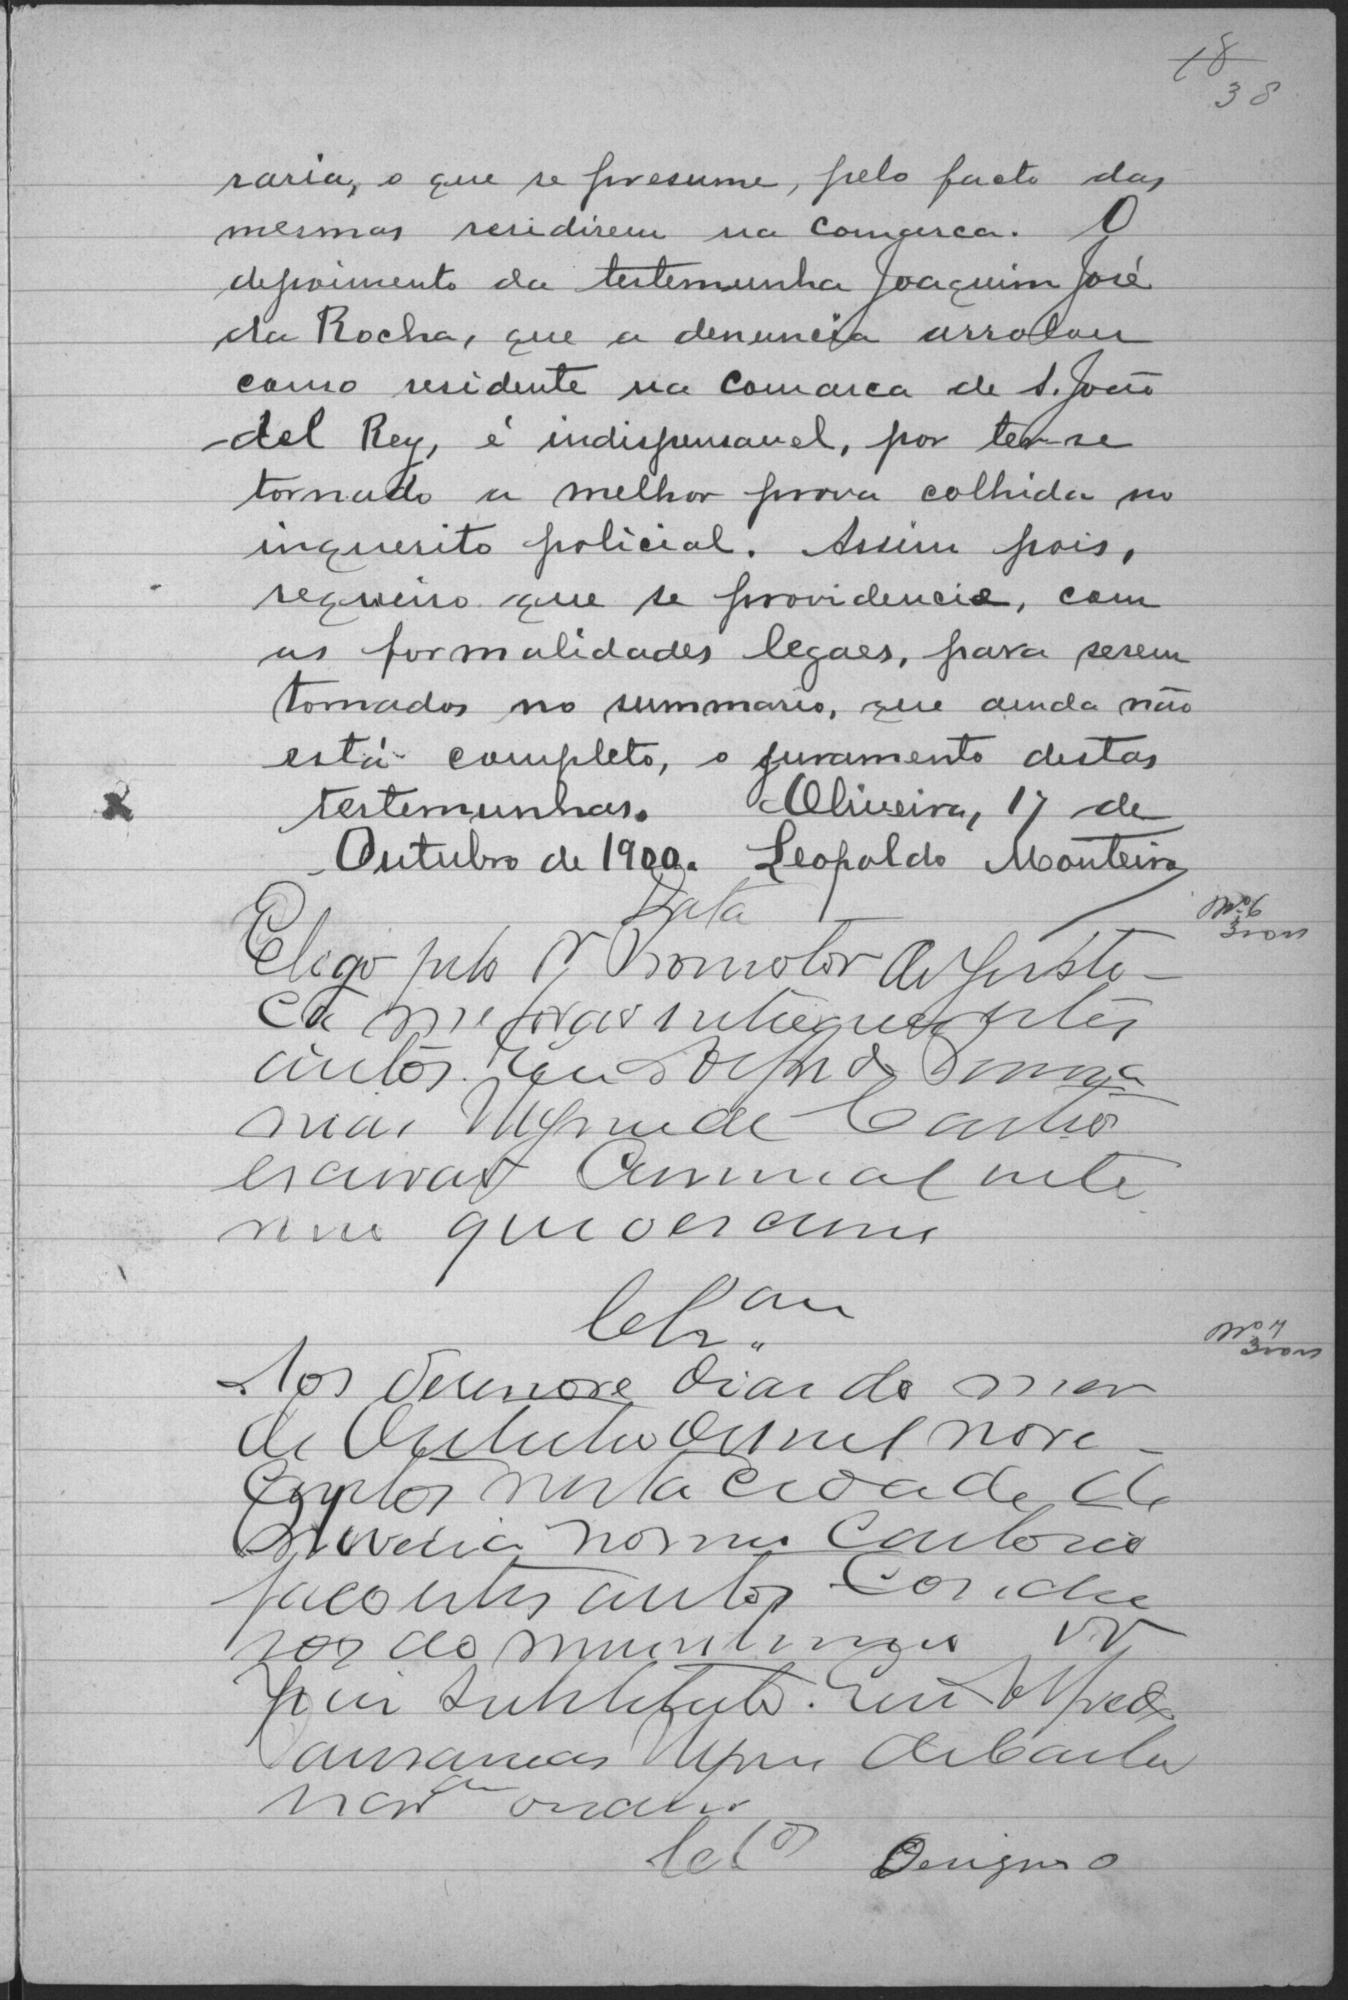 18
38
raria, o que se presume, pelo facto das
mesmas residirem na comarca. O
depoimento da testemunha Joaquim José
da Rocha, que a denuncia arrolou
como residente na comarca de S. João
del Rey, é indispensavel, por ter-se
tornado a melhor prova colhida no
inquerito policial. Assim pois,
requeiro que se providencie, com
as formalidades legaes, para serem
tomados no summario, que ainda não
está completo, o juramento destas
testemunhas. Oliveira, 17 de
Outubro de 1900. Leopoldo Monteiro
Data
pelo Dr Promotor de Justi-
ça me foras entregues estes
autos. Eu Alfredo
de Castro
escrivão Criminal
que o escrevi
Clsam
Aos desenove dias do mes
de Outubro de mil nove-
centos nesta cidade de
Oliveira no meu Cartorio
faço estes autos conclu
sos ao
Juis Substituto. Eu Alfredo
de Castro
Clos Designo o